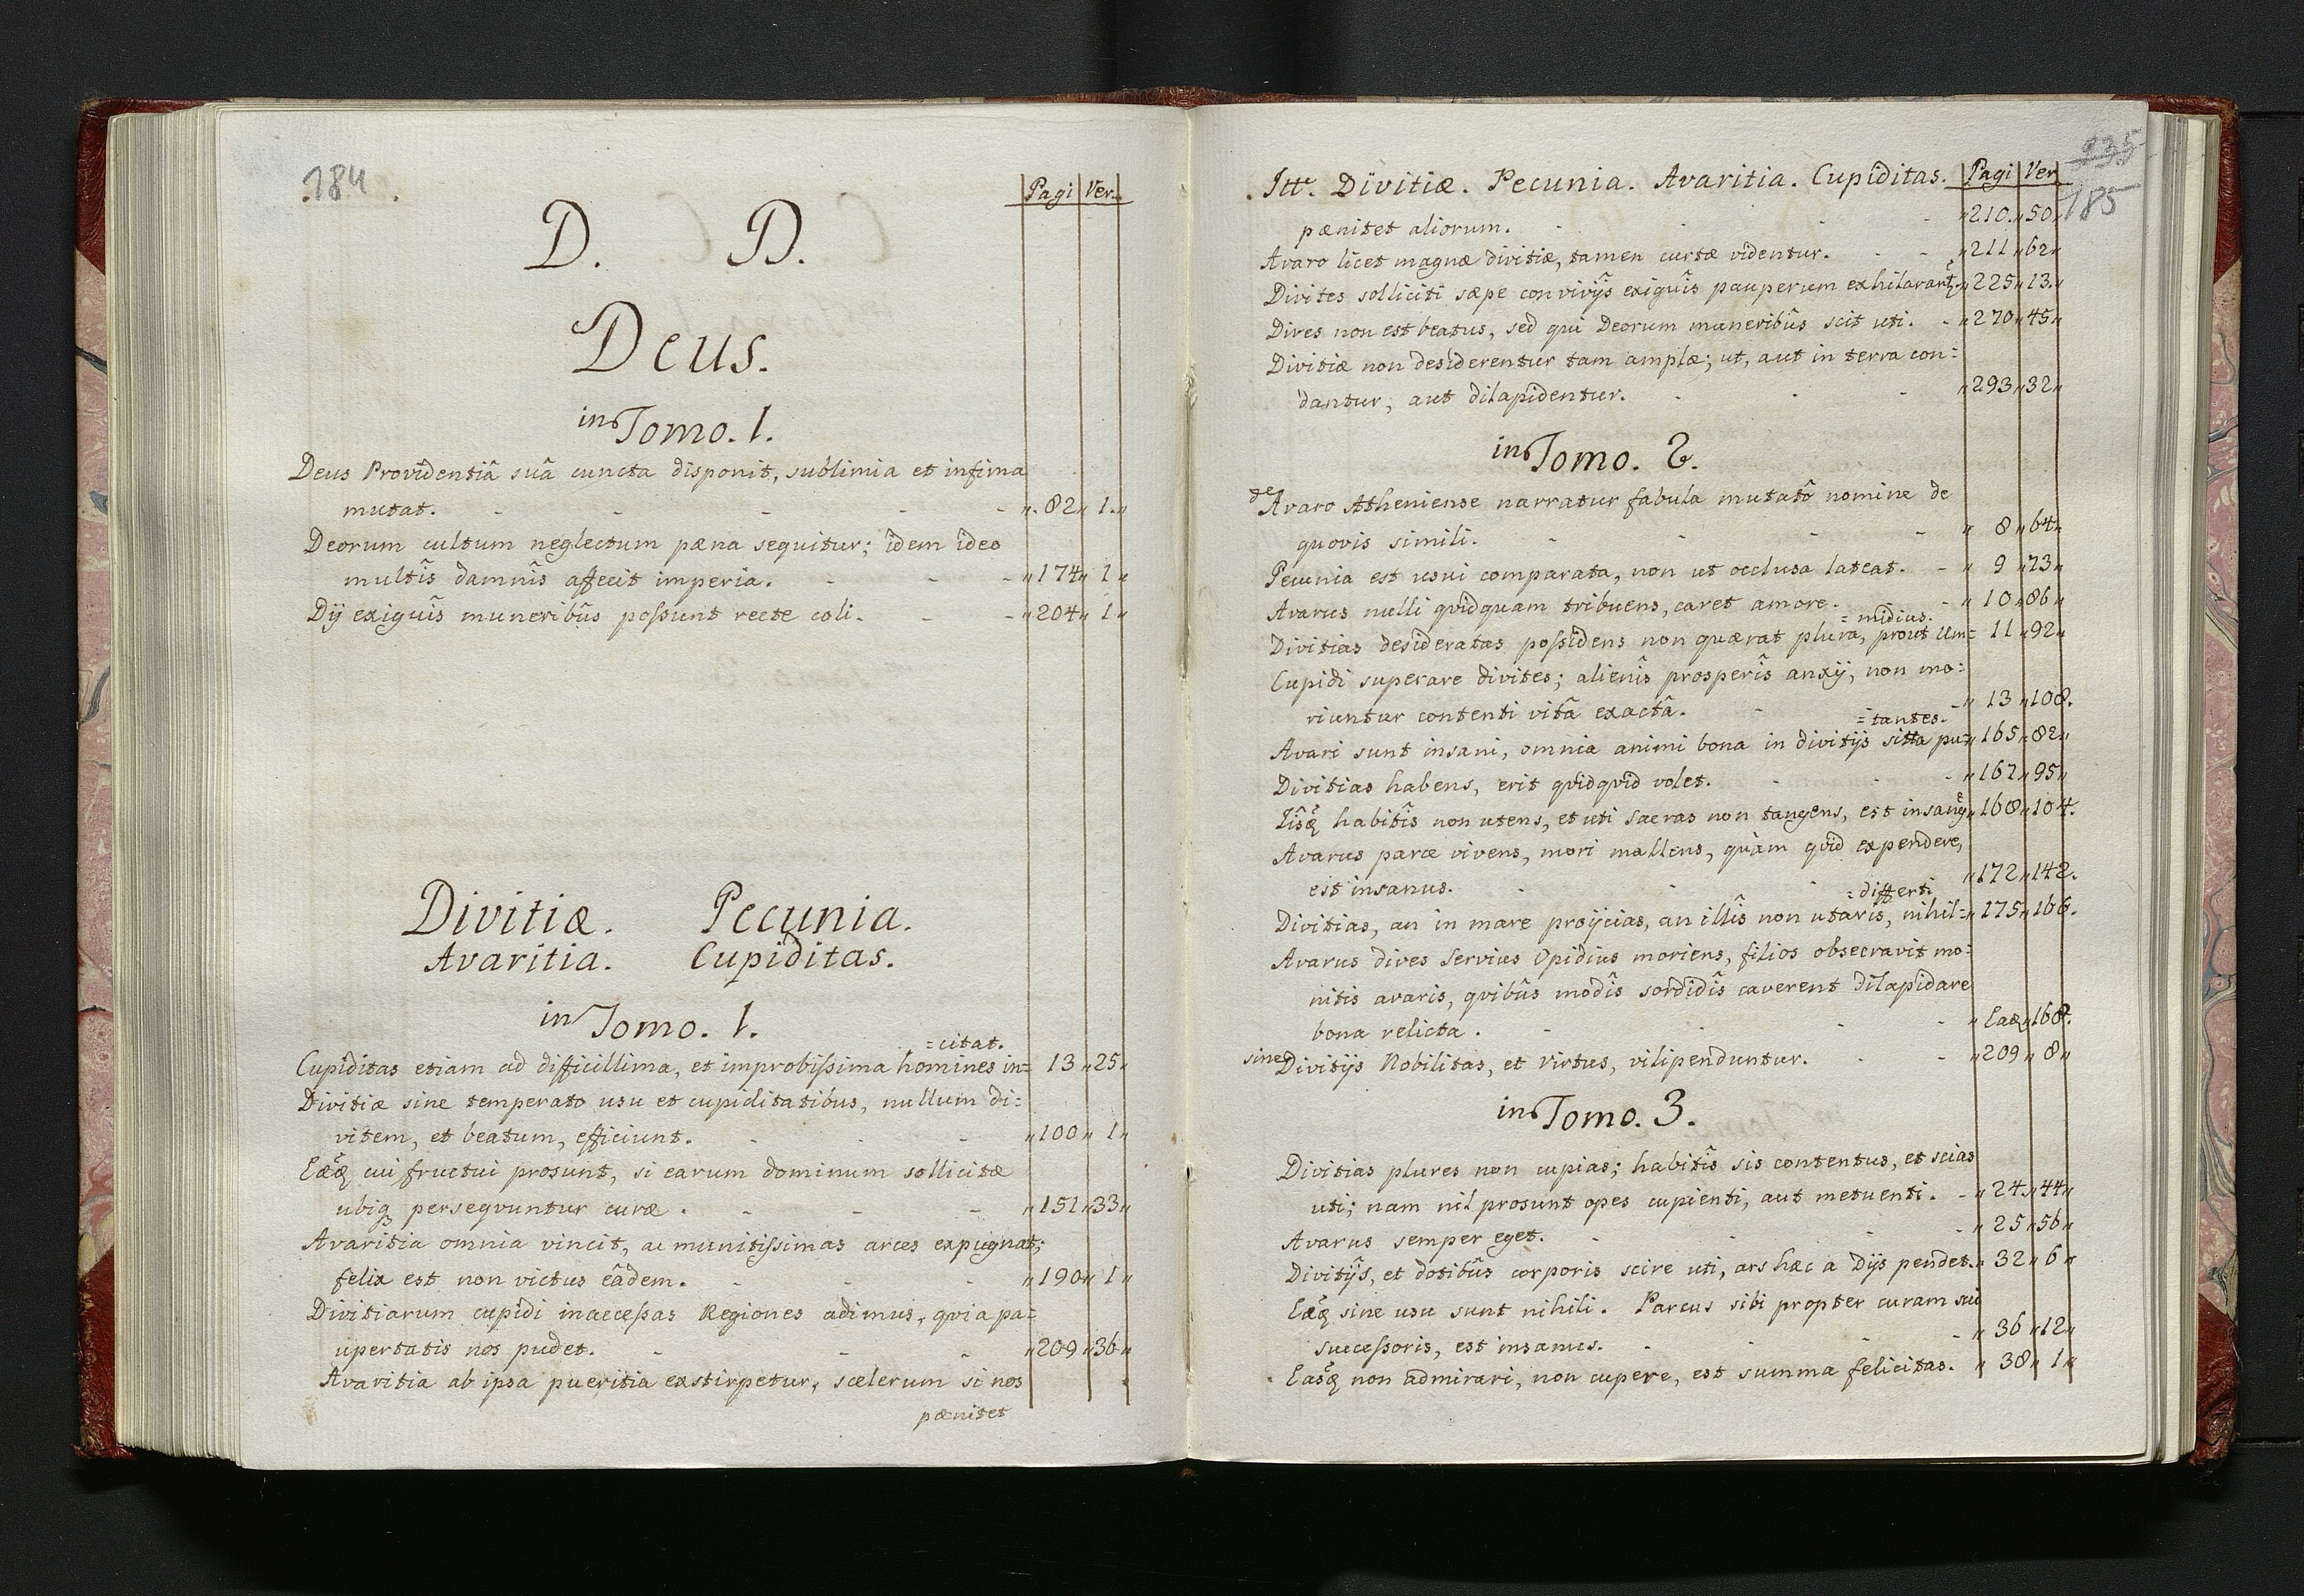 184
Pagi Ver.
D. D.
Deus.
in Tomo. 1.
Deus Providentiâ suâ cuncta disponit, sublimia et infima
mutat. - - - - - „ 82 „ 1 „
Deorum cultum neglectum pæna sequitur; idem ideo
multîs damnîs affecit imperia. - - - „ 174 „ 1 „
Dij exiguîs muneribûs possunt recte coli. - - „ 204 „ 1 „
Divitiæ. Pecunia.
Avaritia. Cupiditas.
in Tomo. 1.
=citat.
Cupiditas etiam ad difficillima, et improbissima homines in= 13 „ 25 „
Divitiæ sine temperato usu et cupiditatibus, nullum di=
vitem, et beatum, efficiunt. - - - „ 100 „ 1 „
Eæq̃ cui fructui prosunt, si earum dominum sollicitæ
ubiq persequuntur curæ. - - - „ 151 „ 33 „
Avaritia omnia vincit, ac munitissimas arces expugnat;
felix est non victus eâdem. - - - „ 190 „ 1 „
Divitiarum cupidi inaccessas Regiones adimus, qvia pa=
upertatis nos pudet. - - - „ 209 „ 36 „
Avaritia ab ipsa pueritia exstirpetur, scelerum si nos
pænitet
235
185
Itte. Divitiæ. Pecunia. Avaritia. Cupiditas. Pagi Ver
pænitet aliorum. - - - „ 210 „ 50 „
Avaro licet magnæ divitiæ, tamen curtæ videntur. - - „ 211 „ 62 „
Divites solliciti sæpe convivijs exiguîs pauperum exhilarant̃ „ 225 „ 13 „
Dives non est beatus, sed qui Deorum muneribûs scit uti. - „ 270 „ 45 „
Divitiæ non desiderentur tam amplæ; ut, aut in terra con=
dantur, aut dilapidentur. - - - „ 293 „ 32 „
in Tomo. 2.
de Avaro Atheniense narratur fabula mutatô nomine de
quovis simili. - - - - „ 8 „ 64 „
Pecunia est usui comparata, non ut occlusa lateat. - „ 9 „ 73 „
Avarus nulli qvidquam tribuens, caret amore. - „ 10 „ 86 „
=midius.
Divitias desideratas possidens non quærat plura, prout Um= 11 „ 92 „
Cupidi superare divites; alienîs prosperîs anxij, non mo=
riuntur contenti vitâ exactâ. - - „ 13 „ 108.
=tantes.
Avari sunt insani, omnia animi bona in divitijs sitta pu= „ 165 „ 82 „
Divitias habens, erit qvidqvid volet. - - - „ 167 „ 95 „
Iîsq̃ habitîs non utens, et uti sacras non tangens, est insanq̃ „ 168 „ 104.
Avarus parce vivens, mori mallens, quàm qvid expendere,
est insanus. - - - „ 172 „ 142.
=differt.
Divitias, an in mare proijcias, an illîs non utaris, nihil= „ 175 „ 166.
Avarus dives Servius Opidius moriens, filios obsecravit mo=
nitis avaris, qvibûs modîs sordidîs caverent dilapidare
bona relicta. - - - - „ Eaq „ 168.
sine Divitijs Nobilitas, et virtus, vilipenduntur. - - „ 209 „ 8 „
in Tomo. 3.
Divitias plures non cupias; habitîs sis contentus, et scias
uti; nam nil prosunt opes cupienti, aut metuenti. - „ 24 „ 44 „
Avarus semper eget. - - - - „ 25 „ 56 „
Divitijs, et dotibûs corporis scire uti, ars hæc a Dijs pendet. „ 32 „ 6 „
Eæq̃ sine usu sunt nihili. Parcus sibi propter curam sui
successoris, est insanus. - - - „ 36 „ 12 „
Easq̃ non admirari, non cupere, est summa felicitas. „ 38 „ 1 „